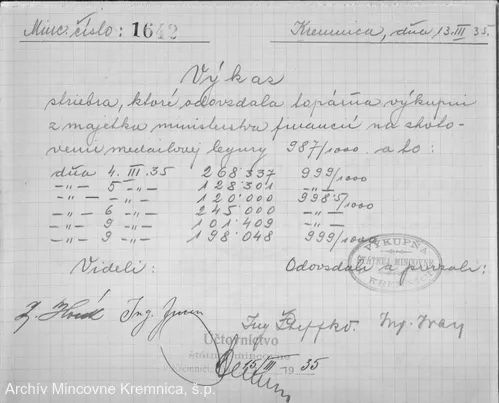 Minc. číslo: 1642
Kremnica, dňa 13.III.35.
Výkaz
striebra, ktoré odovzdala topárňa výkupni
z majetka ministerstva financií na zhoto-
venie medailovej legury 987/1000 a to:
dňa 4.III.35 268·337 999/1000
-„- 5 -„- 128·301 -„-
-„- -„- 120·000 998·5/1000
-„- 6 -„- 245·000 -„-
-„- 9 -„- 101·409 -„-
-„- 9 -„- 198·048 999/1000
VÝKUPŇA
ŠTÁTNEJ MINCOVNE
KREMNICA
Videli: Odovzdali a prevzali:
Ing.
Ing. Ing.
Účtovníctvo
štátnej mincovne
15/III 1935
Archív Mincovne Kremnica, š.p.